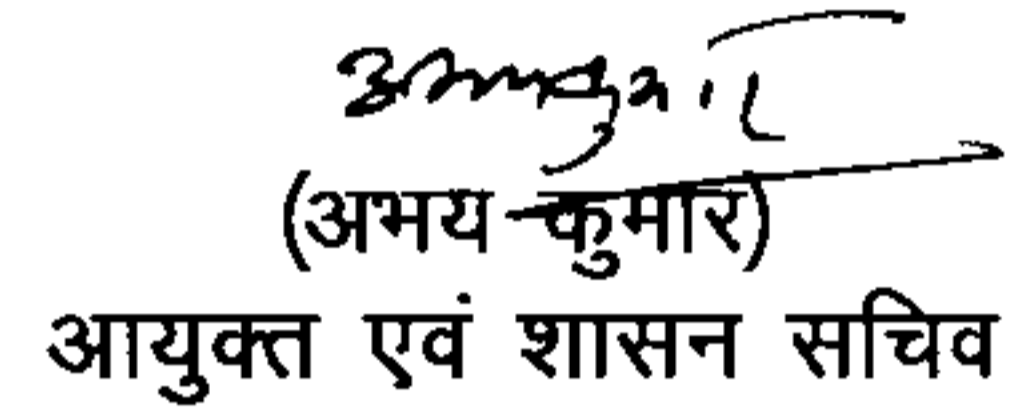 अभय कुमार
(अभय कुमार)
आयुक्त एवं शासन सचिव